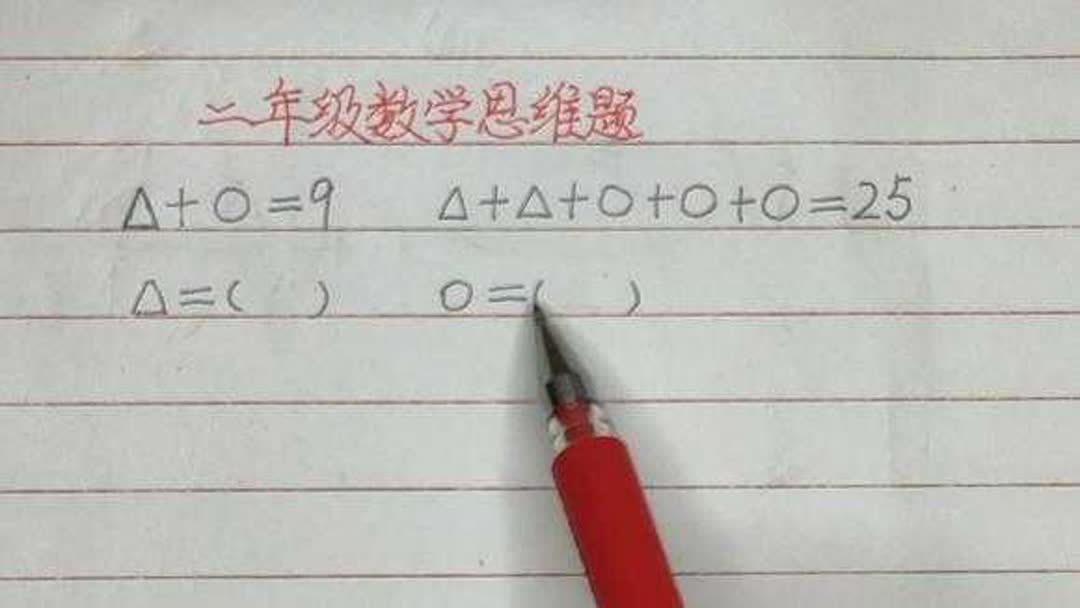 二年级数学思维题
△+○=9 △+△+○+○+○=25
△=( ) ○=( )